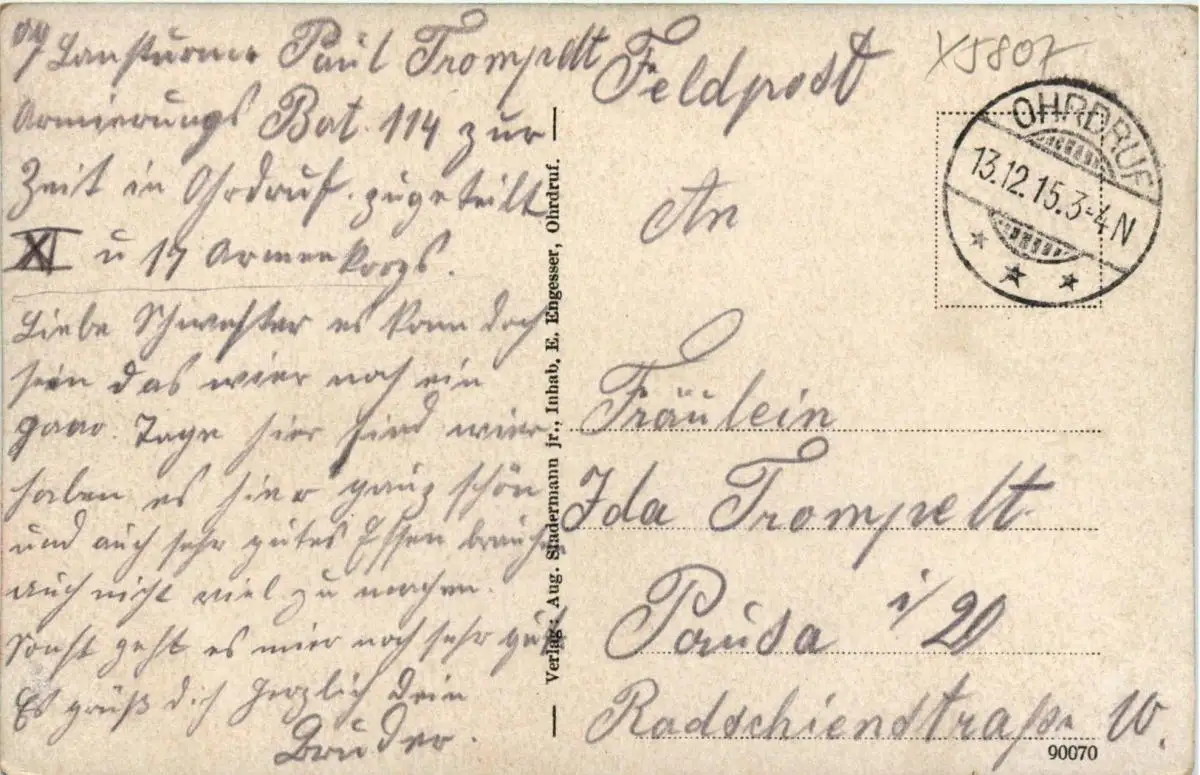 Lansturmr Paul Trompelt
Armierungs Bat. 114 zur
Zeit in Ohrdruf. zugeteilt
XI u 17 Armee Korps.
Liebe Schwester es kann doch
sein das wier noch ein
paar Tage hier sind wier
haben es hier ganz schön
und auch sehr gutes Essen brauchen
auch nicht viel zu machen.
Sonst geht es mier noch sehr gut
Es grüß dich herzlich dein
Bruder.
Verlag: Aug. Stadermann jr., Inhab. E. Engesser, Ohrdruf.
X5807
Feldpost
OHRDRUF
13.12.15.3-4N
An
Fräulein
Ida Trompelt.
Pausa i/
Radschienstraße 10.
90070